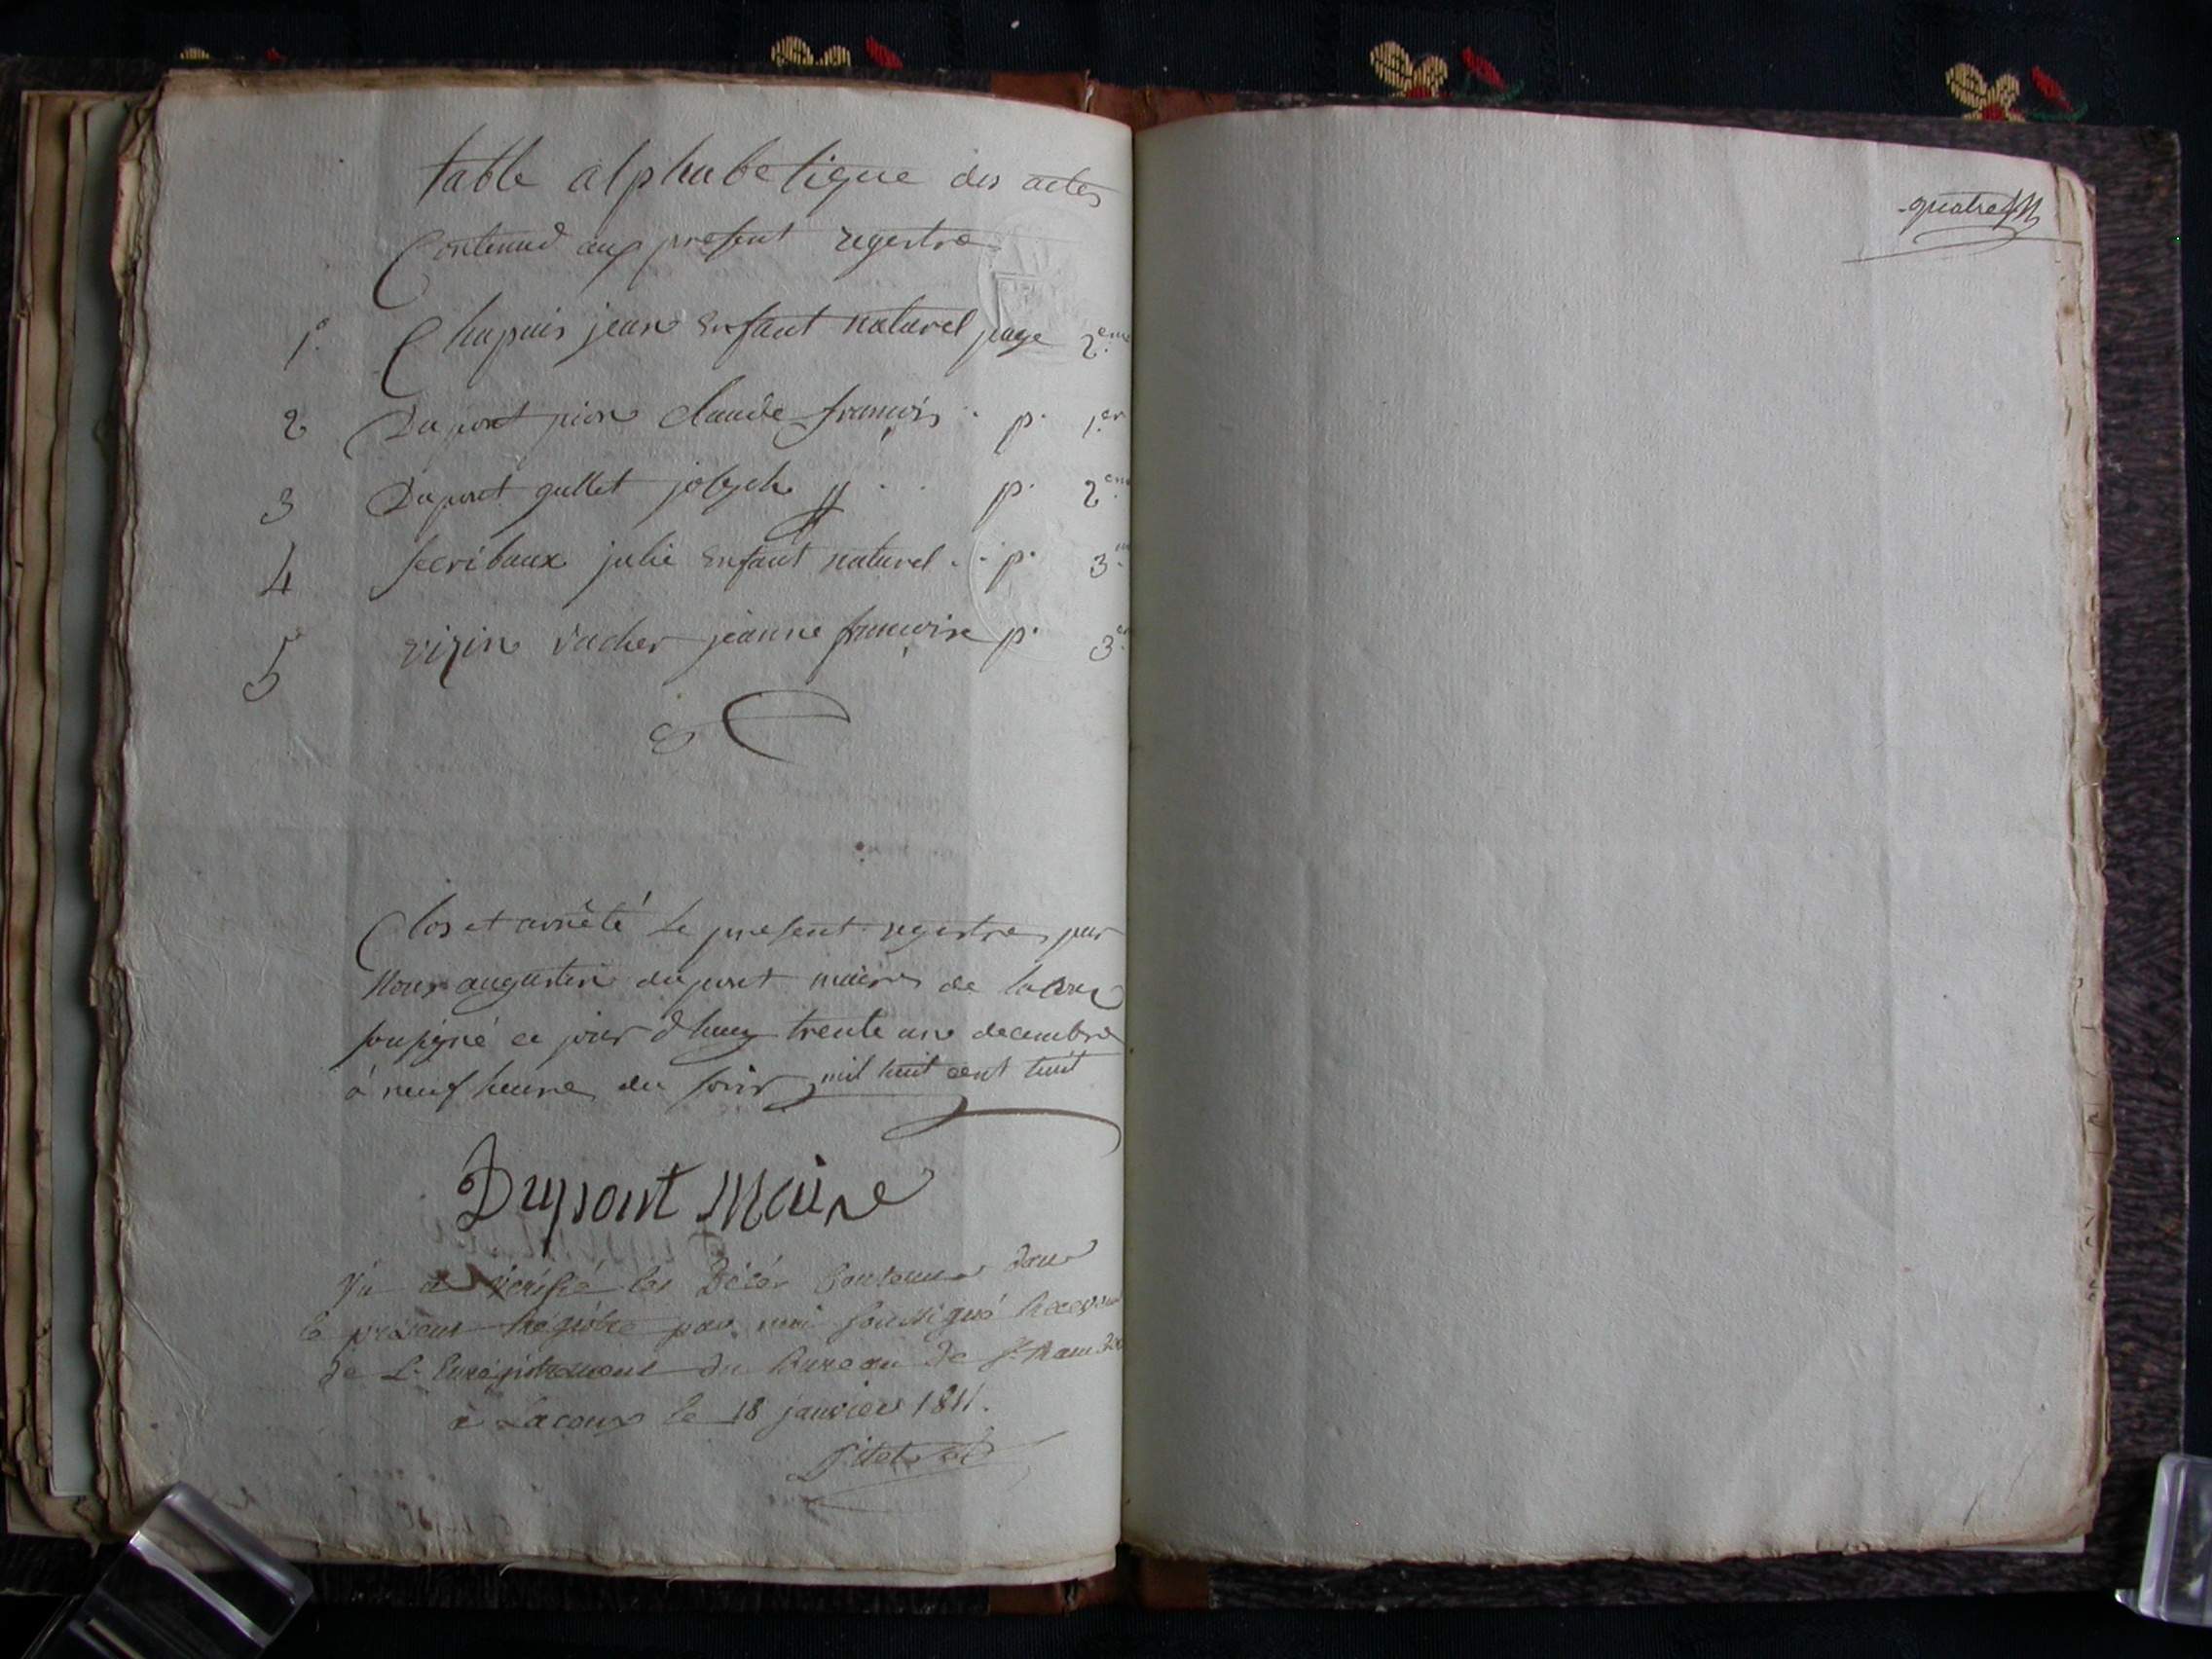 table alphabetique des actes
Contenud aux present regestre
1° Chapuis jean Enfant naturel page 2.eme
2 Dupont pion claude françois . p. 1.er
3 Dupont gullet josephe . . p. 2.eme
4 Scribaux julie Enfant naturel . . p. 3.
5 vizin vacher jeanne françoise p. 3.
Clos et arrêté le present regestre par
Nous augustin dupont maire de lacoux
sousigné ce jour dhuy trente une decembre
à neuf heure du soir mil huit cent huit
Dupont Maire
Vu et vérifié les Décés Contenus dans
le présent Régistre par moi soussigné Receveur
de L'Enregistrement du Bureau de St. Rambert
à Lacoux le 18 janvier 1811.
quatre